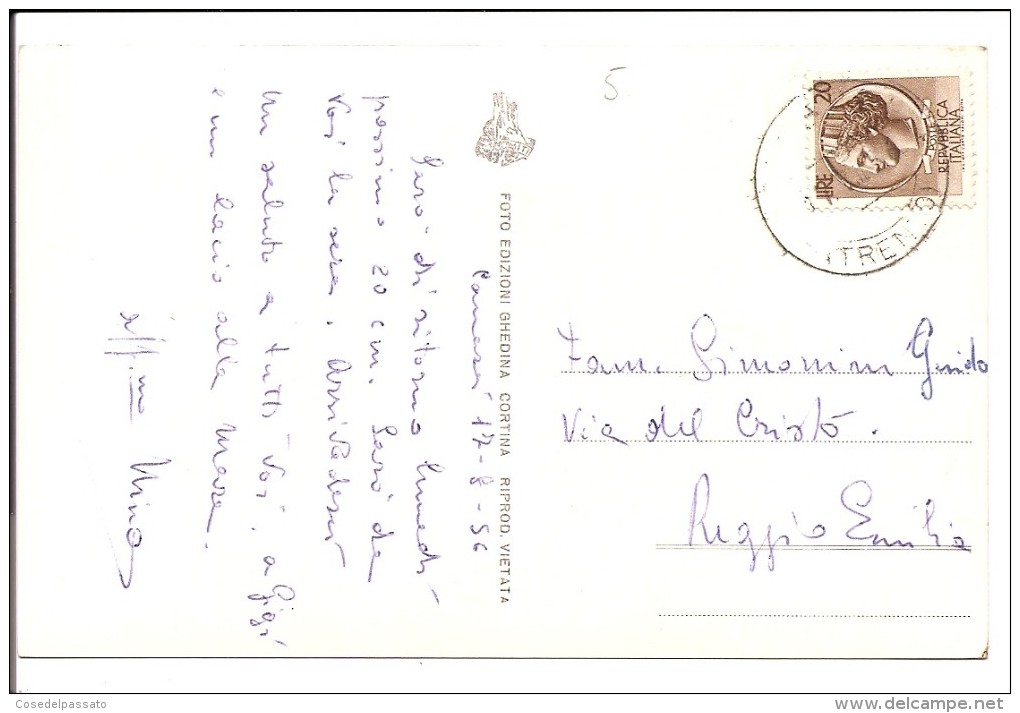 5
LIRE 20
POSTE
REPVBBLICA
ITALIANA
(TRENTO)
FOTO EDIZIONI GHEDINA CORTINA RIPROD. VIETATA
17-8-56
Sarò di ritorno lunedì
prossimo 20 cm. Sarò da
Voi la sera. Arrivederci
Un saluto a tutti Voi, a Gigi
e un bacio alla Mara.
Nino
Fam. Simonini Guido
Via del Cristo.
Reggio Emilia
Cosedelpassato
www.delcampe.net